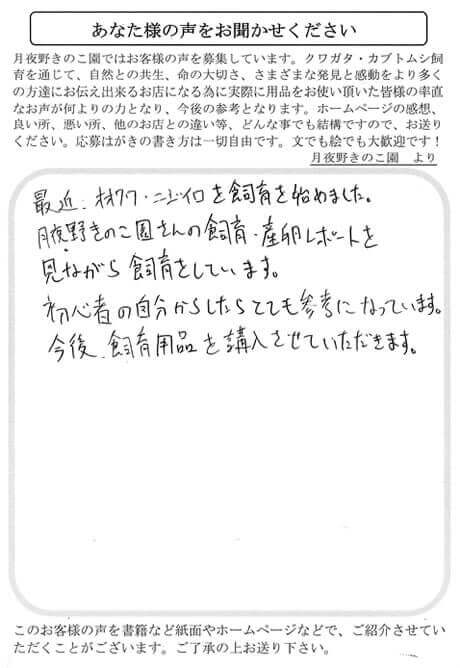 あなた様の声をお聞かせください
月夜野きのこ園ではお客様の声を募集しています。クワガタ・カブトムシ飼
育を通じて、自然との共生、命の大切さ、さまざまな発見と感動をより多く
の方達にお伝え出来るお店になる為に実際に用品をお使い頂いた皆様の率直
なお声が何よりの力となり、今後の参考となります。ホームページの感想、
良い所、悪い所、他のお店との違い等、どんな事でも結構ですので、お送り
ください。応募はがきの書き方は一切自由です。文でも絵でも大歓迎です！
月夜野きのこ園 より
最近、オオクワ・ニジイロを飼育を始めました。
月夜野きのこ園さんの飼育・産卵レポートを
見ながら飼育をしています。
初心者の自分からしたらとても参考になっています。
今後、飼育用品を購入させていただきます。
このお客様の声を書籍など紙面やホームページなどで、ご紹介させてい
ただくことがございます。ご了承の上お送り下さい。